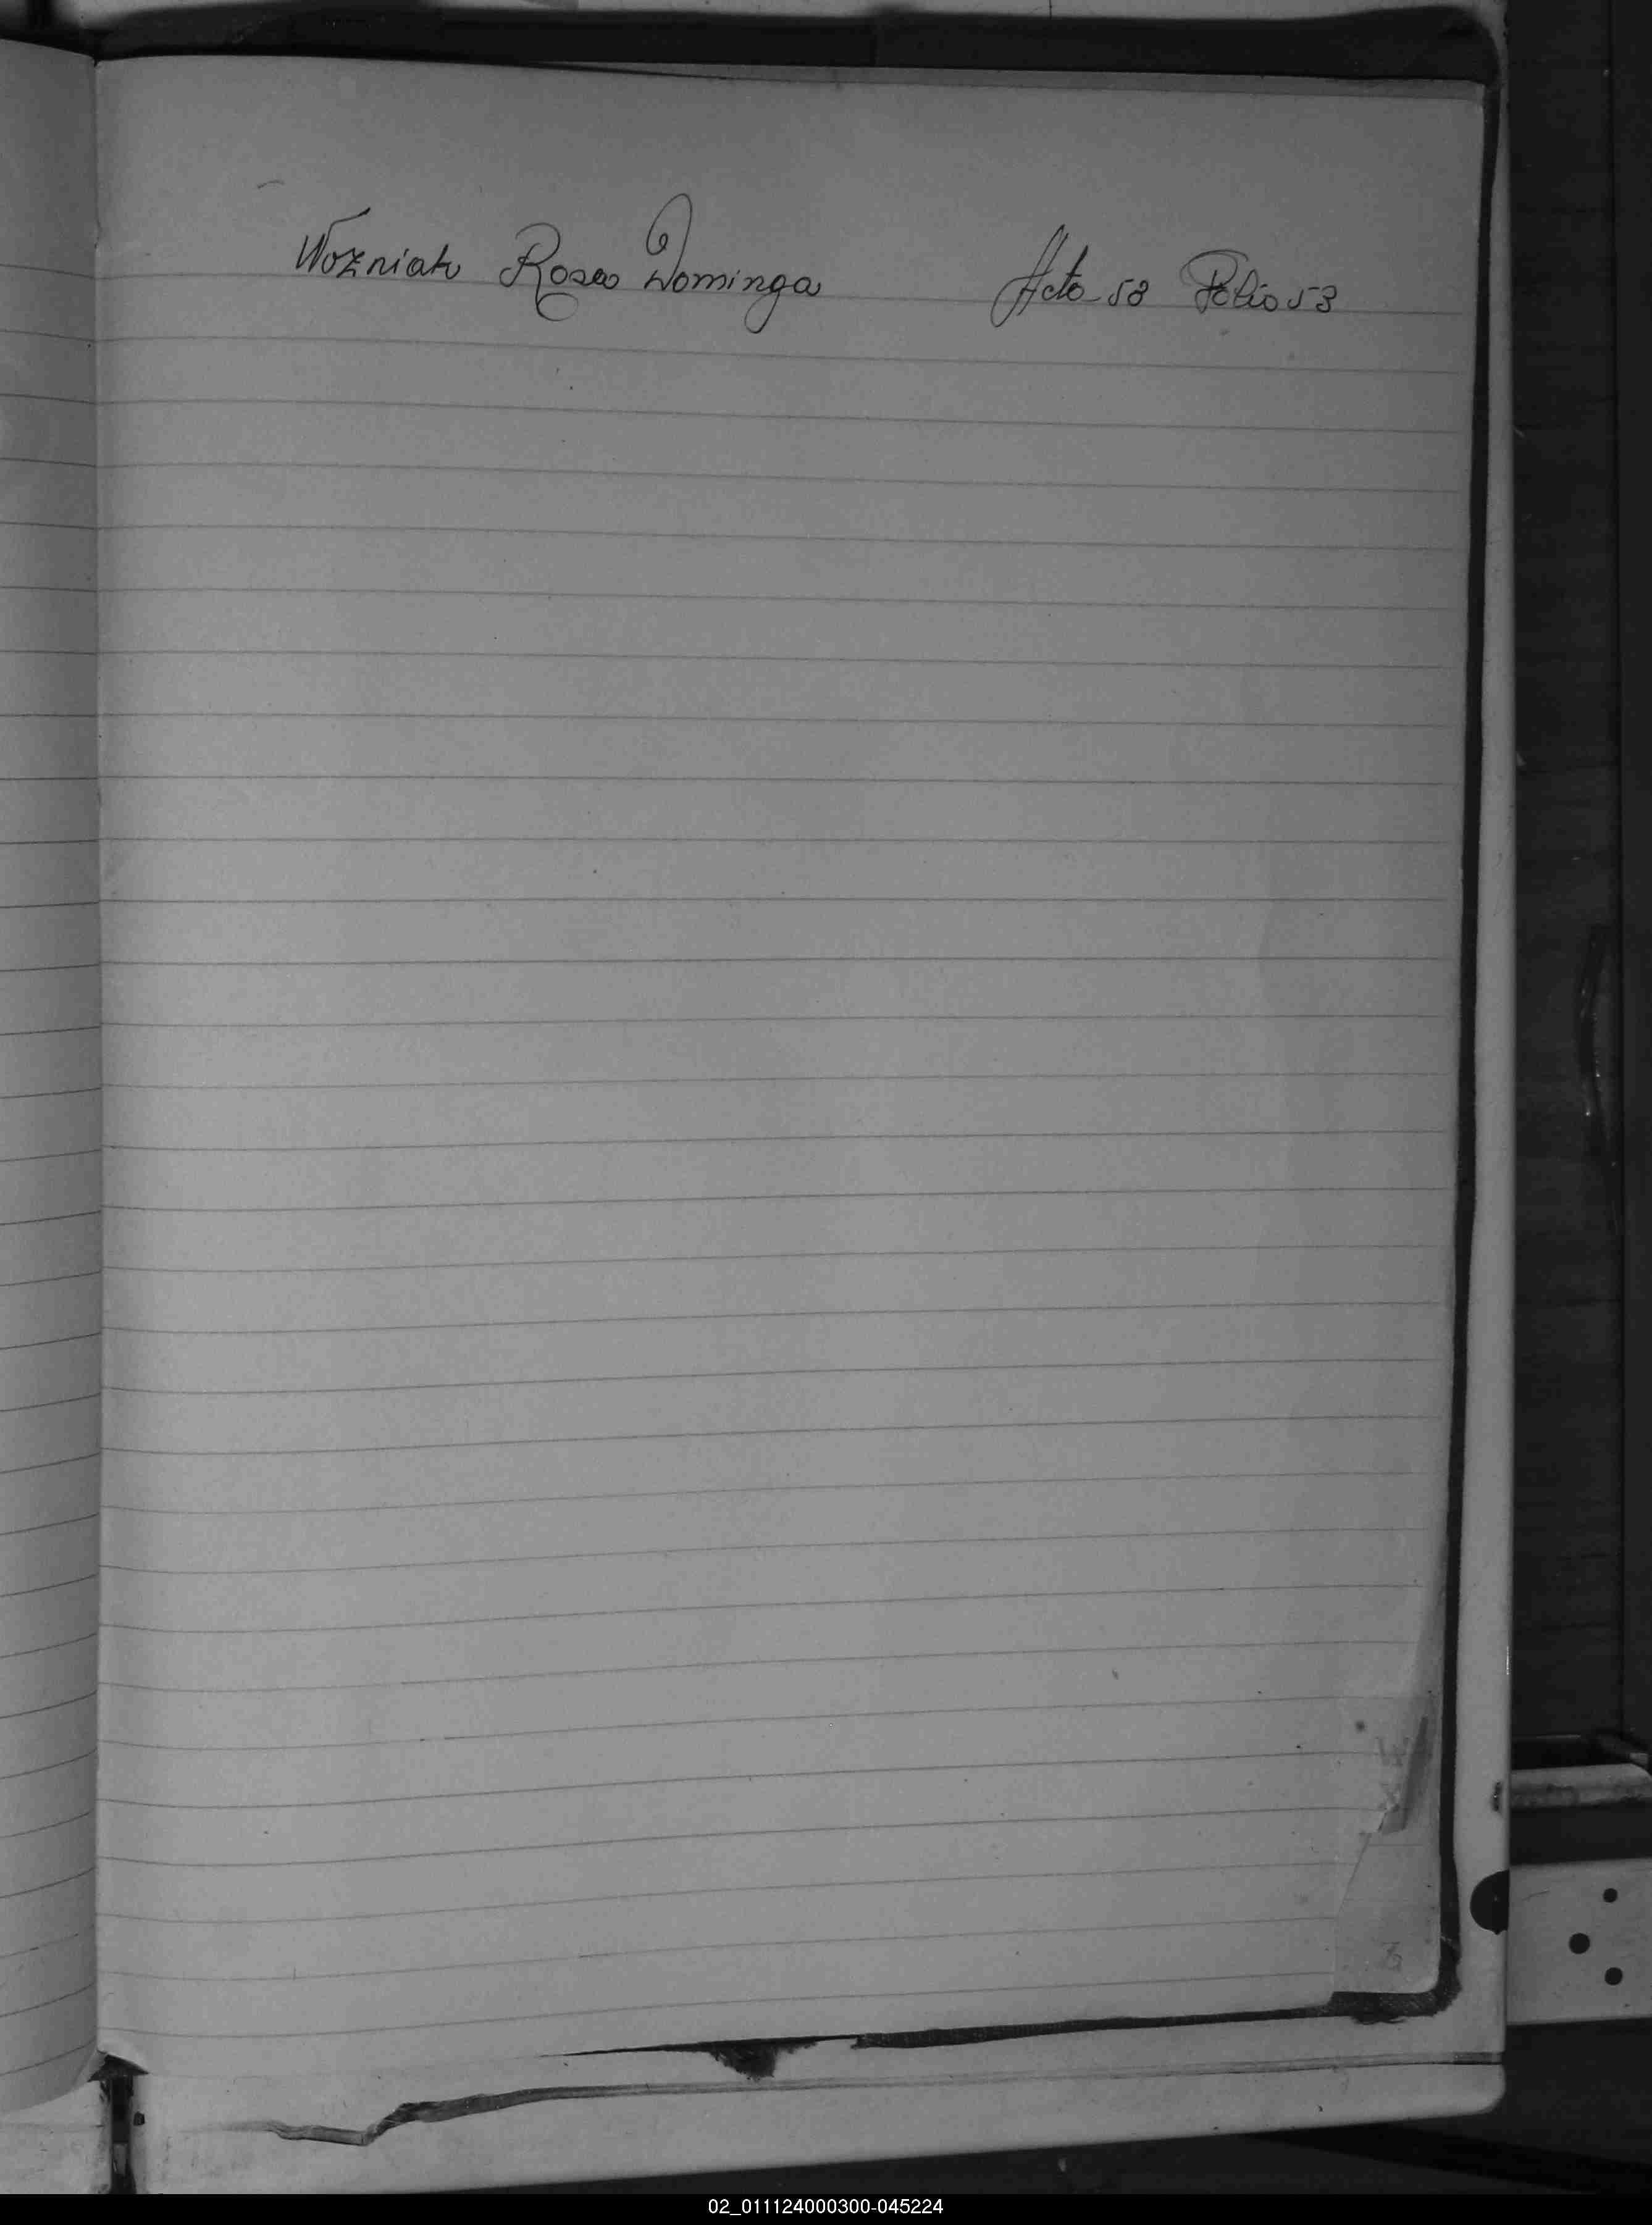 Wozniak Rosa Dominga Acta 53 Folio 53
02_011124000300-045224